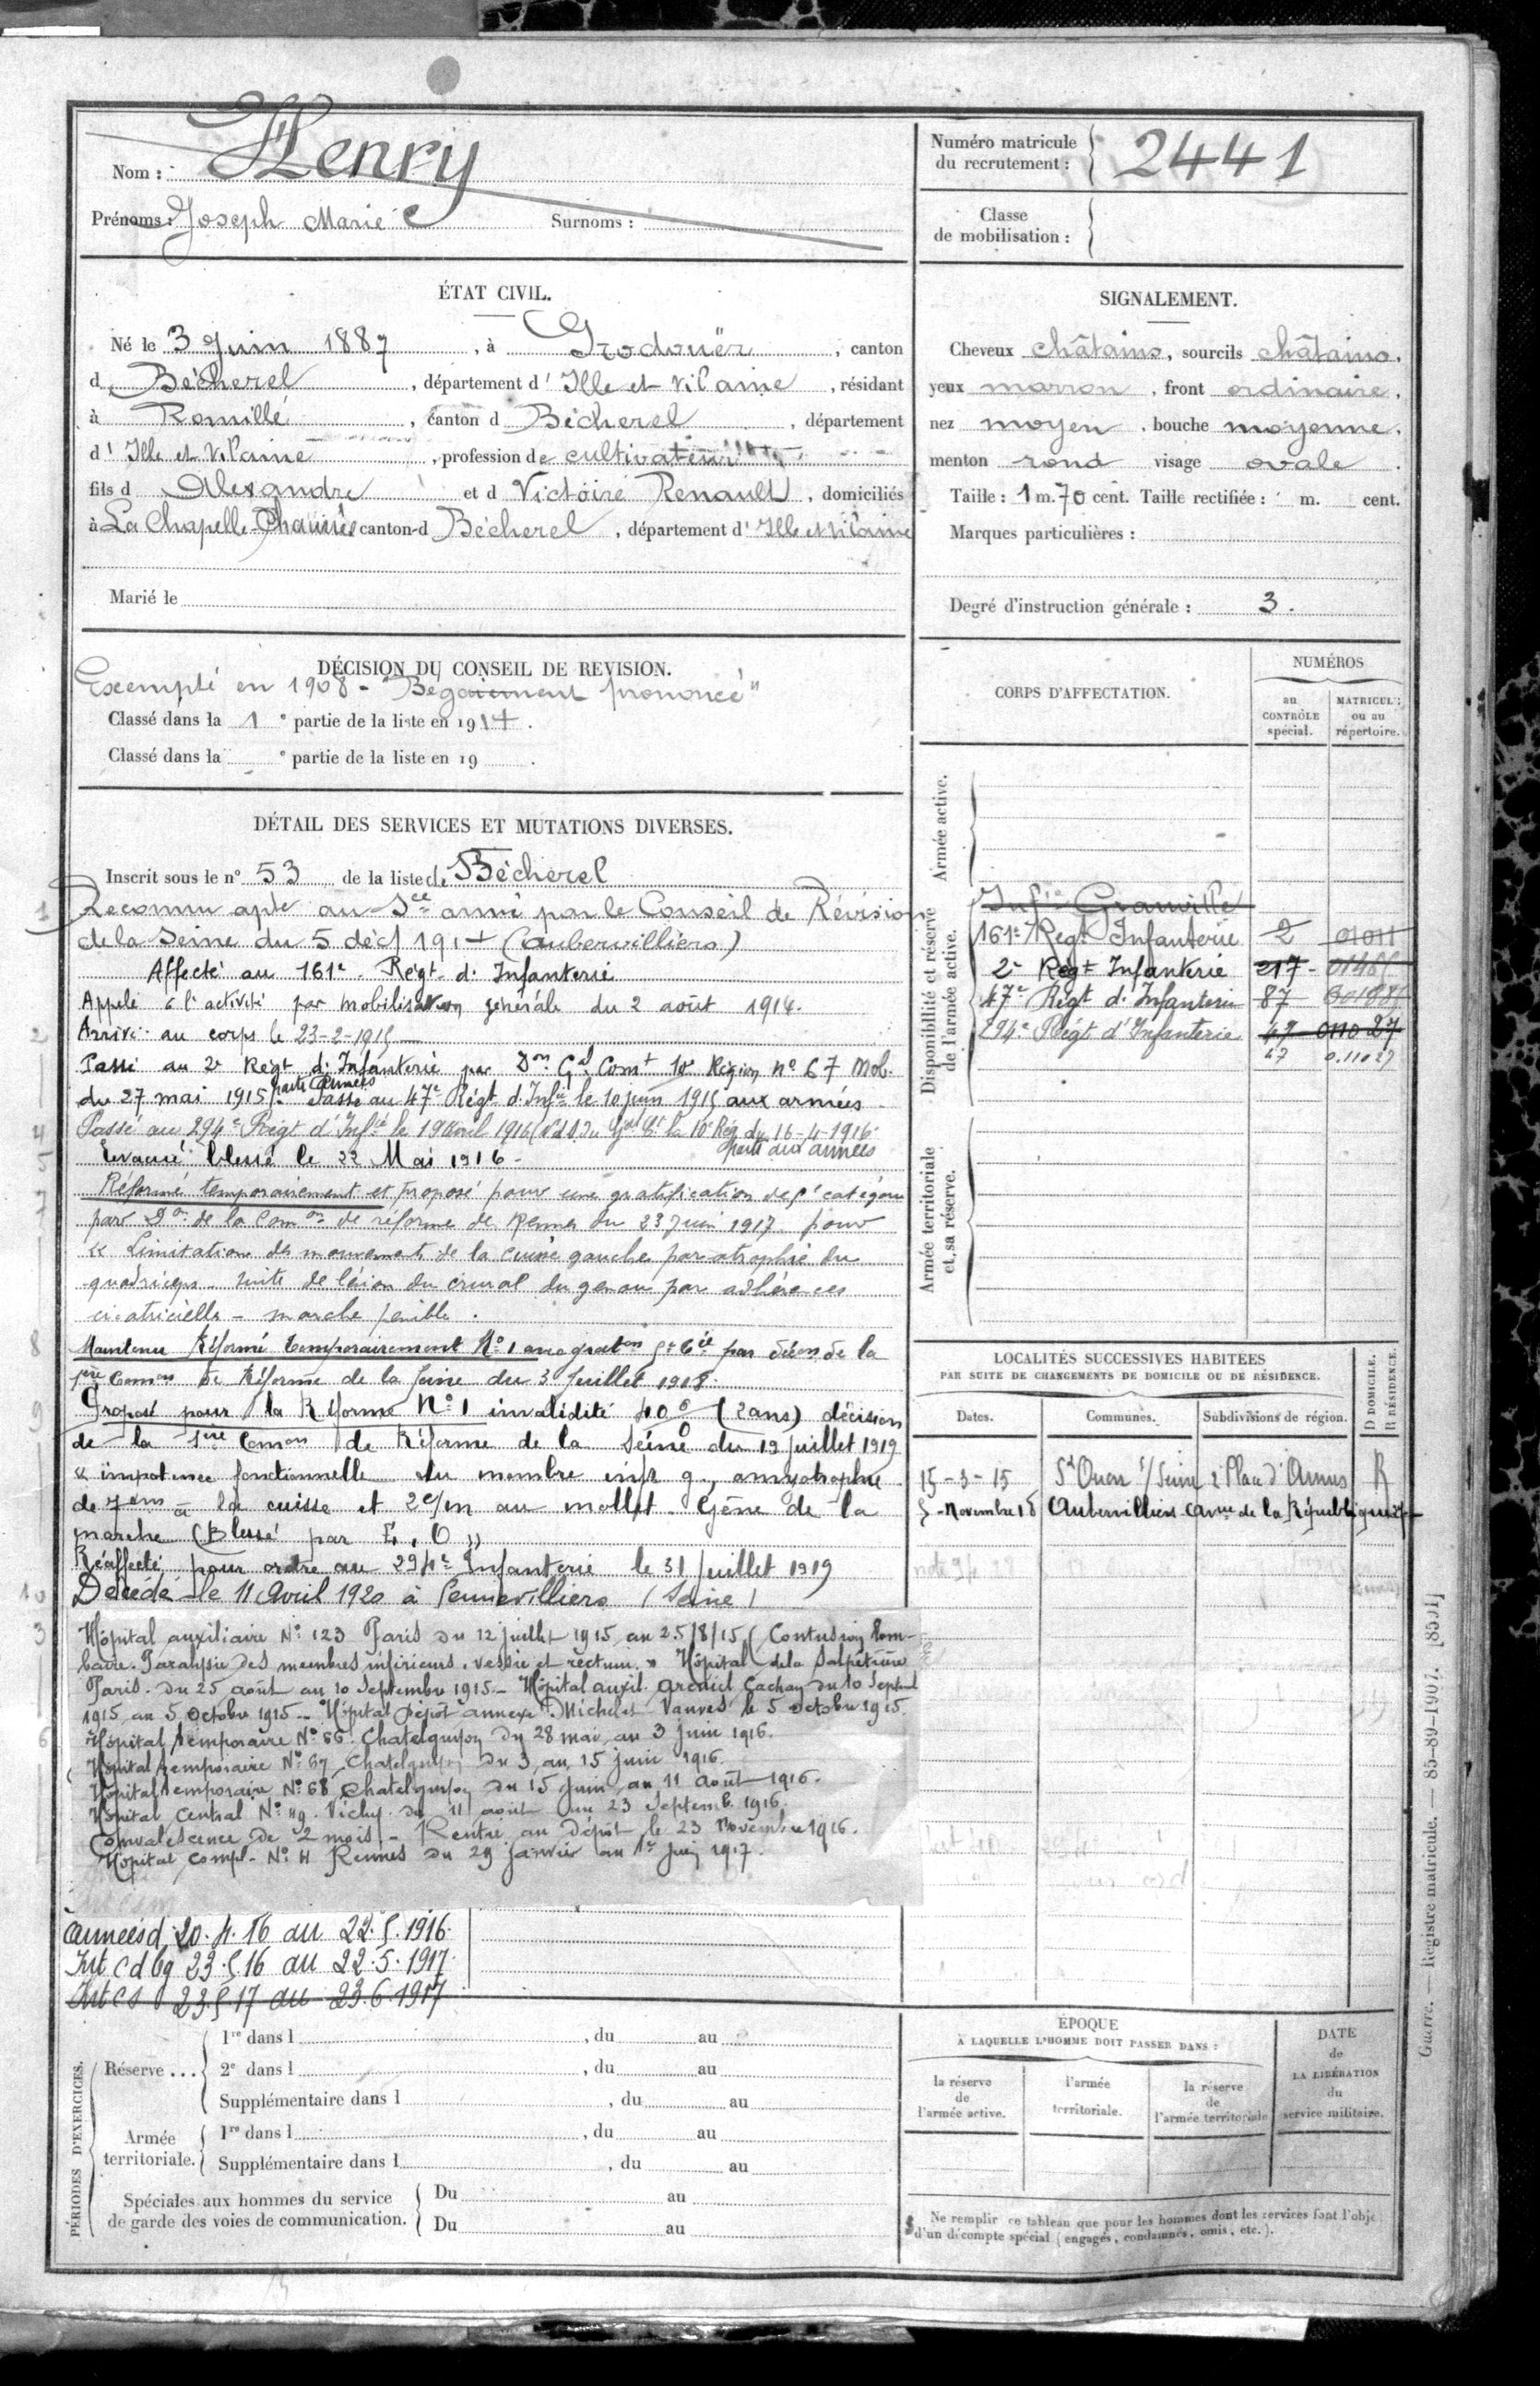 Nom : Henry
Prénoms : Joseph Marie Surnoms :
Numéro matricule du recrutement : 2441
Classe de mobilisation :
ÉTAT CIVIL.
Né le 3 Juin 1887, à Irodouër, canton
d Bécherel, département d' Ille et Vilaine, résidant
à Romillé, canton d Bécherel, département
d' Ille et Vilaine, profession de cultivateur
fils d Alexandre et d Victoire Renault, domiciliés
à La Chapelle Chaussée canton d Bécherel, département d' Ille et Vilaine
Marié le
SIGNALEMENT.
Cheveux châtains, sourcils châtains,
yeux marron, front ordinaire,
nez moyen, bouche moyenne,
menton rond visage ovale.
Taille : 1 m. 70 cent. Taille rectifiée : m. cent.
Marques particulières :
Degré d'instruction générale : 3.
DÉCISION DU CONSEIL DE REVISION.
Exempté en 1908 - "Bégaiement prononcé"
Classé dans la 1e partie de la liste en 1914.
Classé dans la e partie de la liste en 19 .
DÉTAIL DES SERVICES ET MUTATIONS DIVERSES.
Inscrit sous le n° 53 de la liste de Bécherel
1 Reconnu apte au Sce armé par le Conseil de Révision
de la Seine du 5 déc 1914 (Aubervilliers)
Affecté au 161e Régt d'Infanterie
Appelé à l'activité par mobilisation générale du 2 août 1914.
2 Arrivé au corps le 23-2-1915
Passé au 2e Régt d'Infanterie par Don Gal Comt 10e Région n° 67 Mob.
du 27 mai 1915. Passé au 47e Régt d'Infie le 10 juin 1915 aux armées
parti armées
4 Passé au 294e Régt d'Infie le 19 avril 1916 10e Rég. du 16-4-1916
parti aux armées
5 Evacué blessé le 22 Mai 1916 -
7 Réformé temporairement et proposé pour une gratification de catégorie
par Don de la Comon de réforme de Rennes du 23 Juin 1917 pour
« Limitation des mouvements de la cuisse gauche par atrophie du
quadriceps suite de lésion du crural du genou par adhérences
cicatricielles - marche pénible.
8 Maintenu Réformé temporairement N° 1 par décon de la
1ère Comon de Réforme de la Seine du 3 Juillet 1918.
9 Proposé pour la Réforme N° 1 invalidité 40% (2 ans) décision
de la 1ère Comon de Réforme de la Seine du 19 juillet 1919
« impotence fonctionnelle du membre infr g., amyotrophie
de 7cm à la cuisse et 2c/m au mollet. Gêne de la
marche (Blessé par E. O »
Réaffecté pour ordre au 294e Infanterie le 31 juillet 1919
10 Décédé le 11 Avril 1920 à Gennevilliers (Seine)
3 Hôpital auxiliaire N° 123 Paris du 12 juillet 1915 au 25/8/15 (Contusion lom-
baire. Paralysie des membres inférieurs, vessie et rectum. » Hôpital de la Salpêtrière
Paris. du 25 août au 10 Septembre 1915. - Hôpital auxil. Arcueil Cachan du 10 Septemb
1915 au 5 Octobre 1915 - Hôpital Dépôt annexe Michelet Vanves le 5 octobre 1915.
6 Hôpital temporaire N° 66. Chatelguyon du 28 mai au 3 Juin 1916.
Hôpital temporaire N° 67 Chatelguyon du 3 au 15 juin 1916.
Hôpital temporaire N° 68 Chatelguyon du 15 Juin au 11 Août 1916.
Hôpital Central N° 49. Vichy du 11 août au 23 Septemb. 1916.
Convalescence de 2 mois. - Rentré au dépôt le 23 Novembre 1916.
Hôpital compl. N° 4 Rennes du 29 janvier au 1er Juin 1917.
20.4.16 au 22.5.1916
Int 23.5.16 au 22.5.1917
Int 23.5.17 au 23.6.1917
CORPS D'AFFECTATION.
NUMÉROS
au CONTRÔLE spécial.
MATRICULE ou au répertoire.
Armée active.
Disponibilité et réserve de l'armée active.
Infie Granville
161e Régt Infanterie 2 01011
2e Régt Infanterie 217
47e Régt d'Infanterie 87
294e Régt d'Infanterie 47 011027
47 0.11027
Armée territoriale et sa réserve.
LOCALITÉS SUCCESSIVES HABITÉES
PAR SUITE DE CHANGEMENTS DE DOMICILE OU DE RÉSIDENCE.
D DOMICILE. R RÉSIDENCE.
Dates. Communes. Subdivisions de région.
15-3-15 St Ouen s/ Seine 2 Place d'Armes R
5-Novembre 18 Aubervilliers Avue de la République
PÉRIODES D'EXERCICES.
Réserve ...
1re dans l , du au
2e dans l , du au
Supplémentaire dans l , du au
Armée territoriale.
1re dans l , du au
Supplémentaire dans l , du au
Spéciales aux hommes du service
de garde des voies de communication.
Du au
Du au
ÉPOQUE
À LAQUELLE L'HOMME DOIT PASSER DANS :
la réserve de l'armée active.
l'armée territoriale.
la réserve de l'armée territoriale
DATE de LA LIBÉRATION du service militaire.
Ne remplir ce tableau que pour les hommes dont les services font l'obje
d'un décompte spécial (engagés, condamnés, omis, etc.).
Guerre. — Registre matricule. — 85-89-1907. [8551]